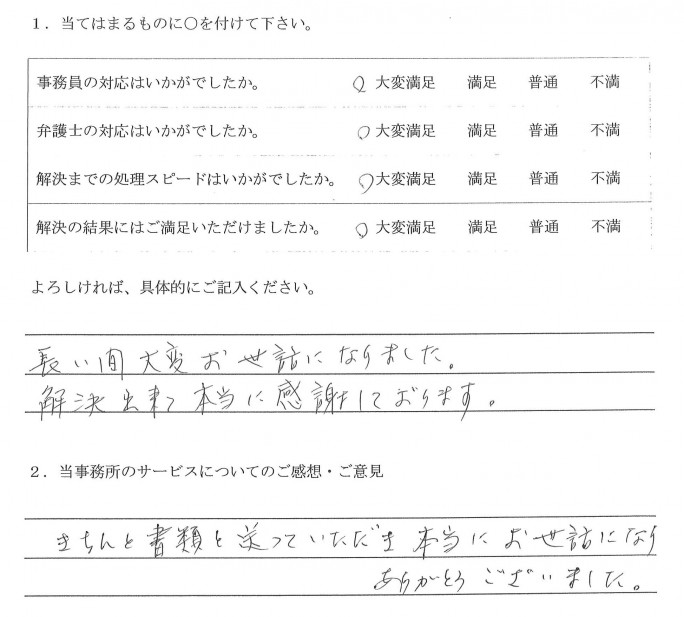 １．当てはまるものに○を付けて下さい。
事務員の対応はいかがでしたか。 ○ 大変満足 満足 普通 不満
弁護士の対応はいかがでしたか。 ○ 大変満足 満足 普通 不満
解決までの処理スピードはいかがでしたか。 ○ 大変満足 満足 普通 不満
解決の結果にはご満足いただけましたか。 ○ 大変満足 満足 普通 不満
よろしければ、具体的にご記入ください。
長い間大変お世話になりました。
解決出来て本当に感謝しております。
２．当事務所のサービスについてのご感想・ご意見
きちんと書類を送っていただき本当にお世話になり
ありがとうございました。